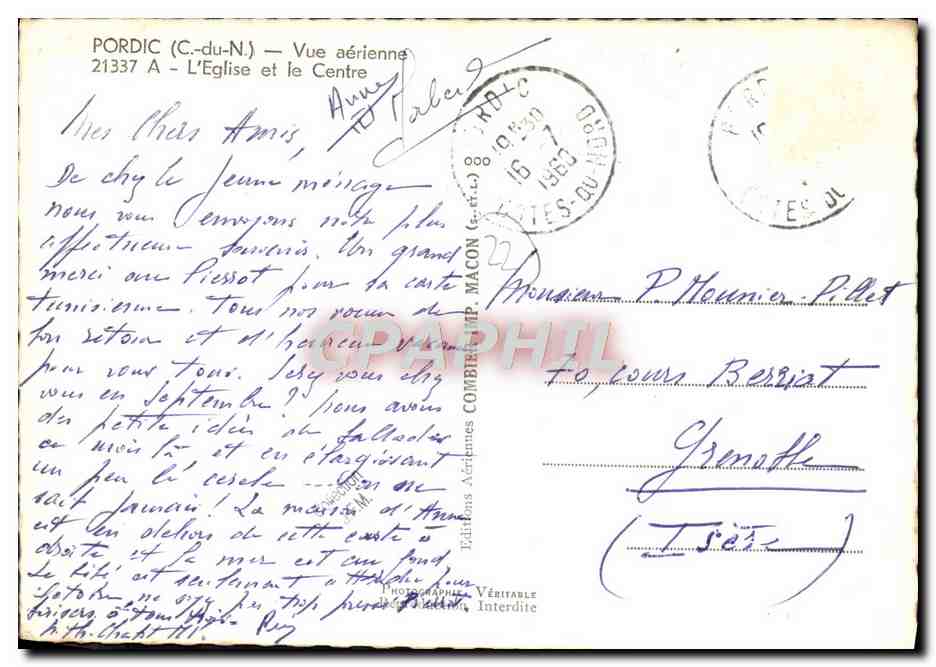 PORDIC (C.-du-N.) — Vue aérienne
21337 A - L'Eglise et le Centre
Anne
Robert
Mes Chers Amis,
De chez le jeune ménage
nous vous envoyons notre plus
affectueux souvenir. Un grand
merci au Pierrot pour sa carte
tunisienne. Tous nos voeux de
bon retour et d'heureux vacances
pour vous tous. Serez vous chez
vous en Septembre ? nous avons
des petites idées de
ce mois là et en élargissant
un peu le cercle ---- on ne
sait jamais ! La maison d'Anne
est en dehors de cette carte à
droite et la mer est au fond
Le bébé est seulement pour
ne pas trop
à tous
PORDIC
19H30
16-7
1960
COTES-DU-NORD
PORDIC
COTES DU
22
Editions Aériennes COMBIER IMP. MACON (S.-et-L.) 000
Monsieur P. Mounier-Pillet
70, cours Berriat
Grenoble
(Isère)
CPAPHIL
Collection
J.M.
PHOTOGRAPHIE VÉRITABLE
Reproduction Interdite